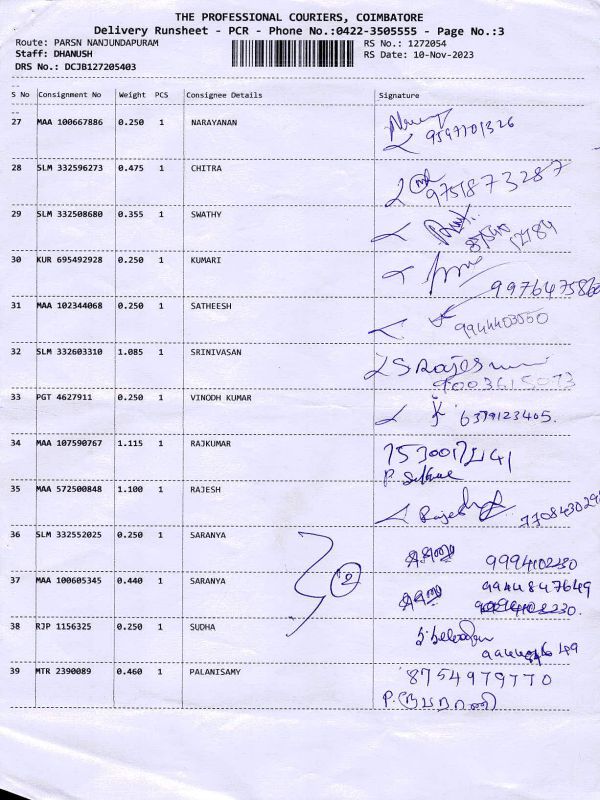 THE PROFESSIONAL COURIERS, COIMBATORE
Delivery Runsheet - PCR - Phone No.:0422-3505555 - Page No.:3
Route: PARSN NANJUNDAPURAM RS No.: 1272054
Staff: DHANUSH RS Date: 10-Nov-2023
DRS No.: DCJB127205403
S No Consignment No Weight PCS Consignee Details Signature
27 MAA 100667886 0.250 1 NARAYANAN 9597701326
28 SLM 332596273 0.475 1 CHITRA 9751873287
29 SLM 332508680 0.355 1 SWATHY
30 KUR 695492928 0.250 1 KUMARI 9976475860
31 MAA 102344068 0.250 1 SATHEESH 9944403050
32 SLM 332603310 1.085 1 SRINIVASAN
9003615073
33 PGT 4627911 0.250 1 VINODH KUMAR 6379123405.
34 MAA 107590767 1.115 1 RAJKUMAR
35 MAA 572500848 1.100 1 RAJESH Rajesh
36 SLM 332552025 0.250 1 SARANYA 9994102230
37 MAA 100605345 0.440 1 SARANYA 2 9944847649
38 RJP 1156325 0.250 1 SUDHA
39 MTR 2390089 0.460 1 PALANISAMY 8754979770